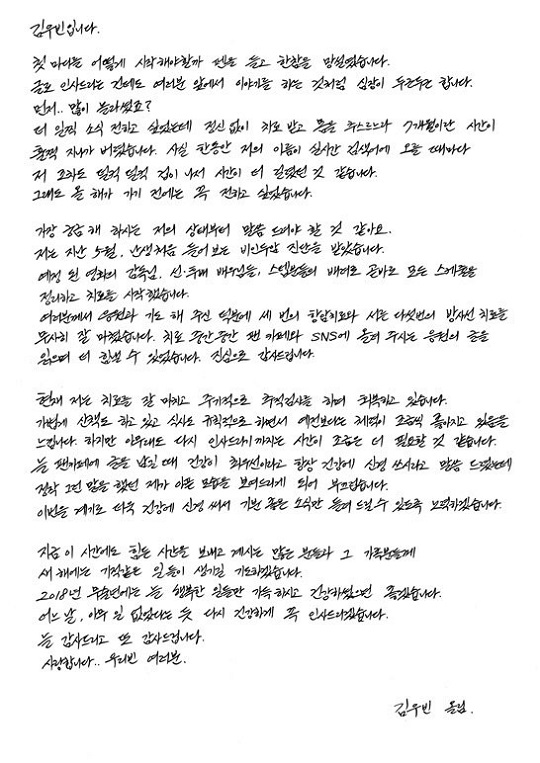 김우빈입니다.
첫 마디를 어떻게 시작해야할까 펜을 들고 한참을 망설였습니다.
글로 인사드리는 건데도 여러분 앞에서 이야기를 하는 것처럼 심장이 두근두근 합니다.
먼저.. 많이 놀라셨죠?
더 일찍 소식 전하고 싶었는데 정신 없이 치료 받고 몸을 추스르느라 7개월이란 시간이
훌쩍 지나가 버렸습니다. 사실 한동안 저의 이름이 실시간 검색어에 오를 때마다
저 조차도 덜컥 덜컥 겁이 나서 시간이 더 걸렸던 것 같습니다.
그래도 올 해가 가기 전에는 꼭 전하고 싶었습니다.
가장 궁금해 하시는 저의 상태부터 말씀 드려야 할 것 같아요.
저는 지난 5월, 난생처음 들어 보는 비인두암 진단을 받았습니다.
예정 된 영화의 감독님, 선·후배 배우님들, 스텝분들의 배려로 곧바로 모든 스케줄을
정리하고 치료를 시작했습니다.
여러분께서 응원과 기도 해 주신 덕분에 세 번의 항암치료와 서른 다섯번의 방사선 치료를
무사히 잘 마쳤습니다. 치료 중간중간 팬 카페와 SNS에 올려 주시는 응원의 글을
읽으며 더 힘낼 수 있었습니다. 진심으로 감사드립니다.
현재 저는 치료를 잘 마치고 주기적으로 추적검사를 하며 회복하고 있습니다.
가볍게 산책도 하고 있고 식사도 규칙적으로 하면서 예전보다는 체력이 조금씩 좋아지고 있음을
느낍니다. 하지만 아무래도 다시 인사드리기까지는 시간이 조금은 더 필요할 것 같습니다.
늘 팬카페에 글을 남길 때 건강이 최우선이라고 항상 건강에 신경 쓰시라고 말씀 드렸는데
정작 그런 말을 했던 제가 아픈 모습을 보여드리게 되어 부끄럽습니다.
이번을 계기로 더욱 건강에 신경 써서 기분 좋은 소식만 들려 드릴 수 있도록 노력하겠습니다.
지금 이 시간에도 힘든 시간을 보내고 계시는 많은 분들과 그 가족분들께
새 해에는 기적같은 일들이 생기길 기도하겠습니다.
2018년 무술년에는 늘 행복한 일들만 가득하시고 건강하셨으면 좋겠습니다.
어느 날, 아무 일 없었다는 듯 다시 건강하게 꼭 인사드리겠습니다.
늘 감사드리고 또 감사드립니다.
사랑합니다.. 우리빈 여러분.
김우빈 올림.